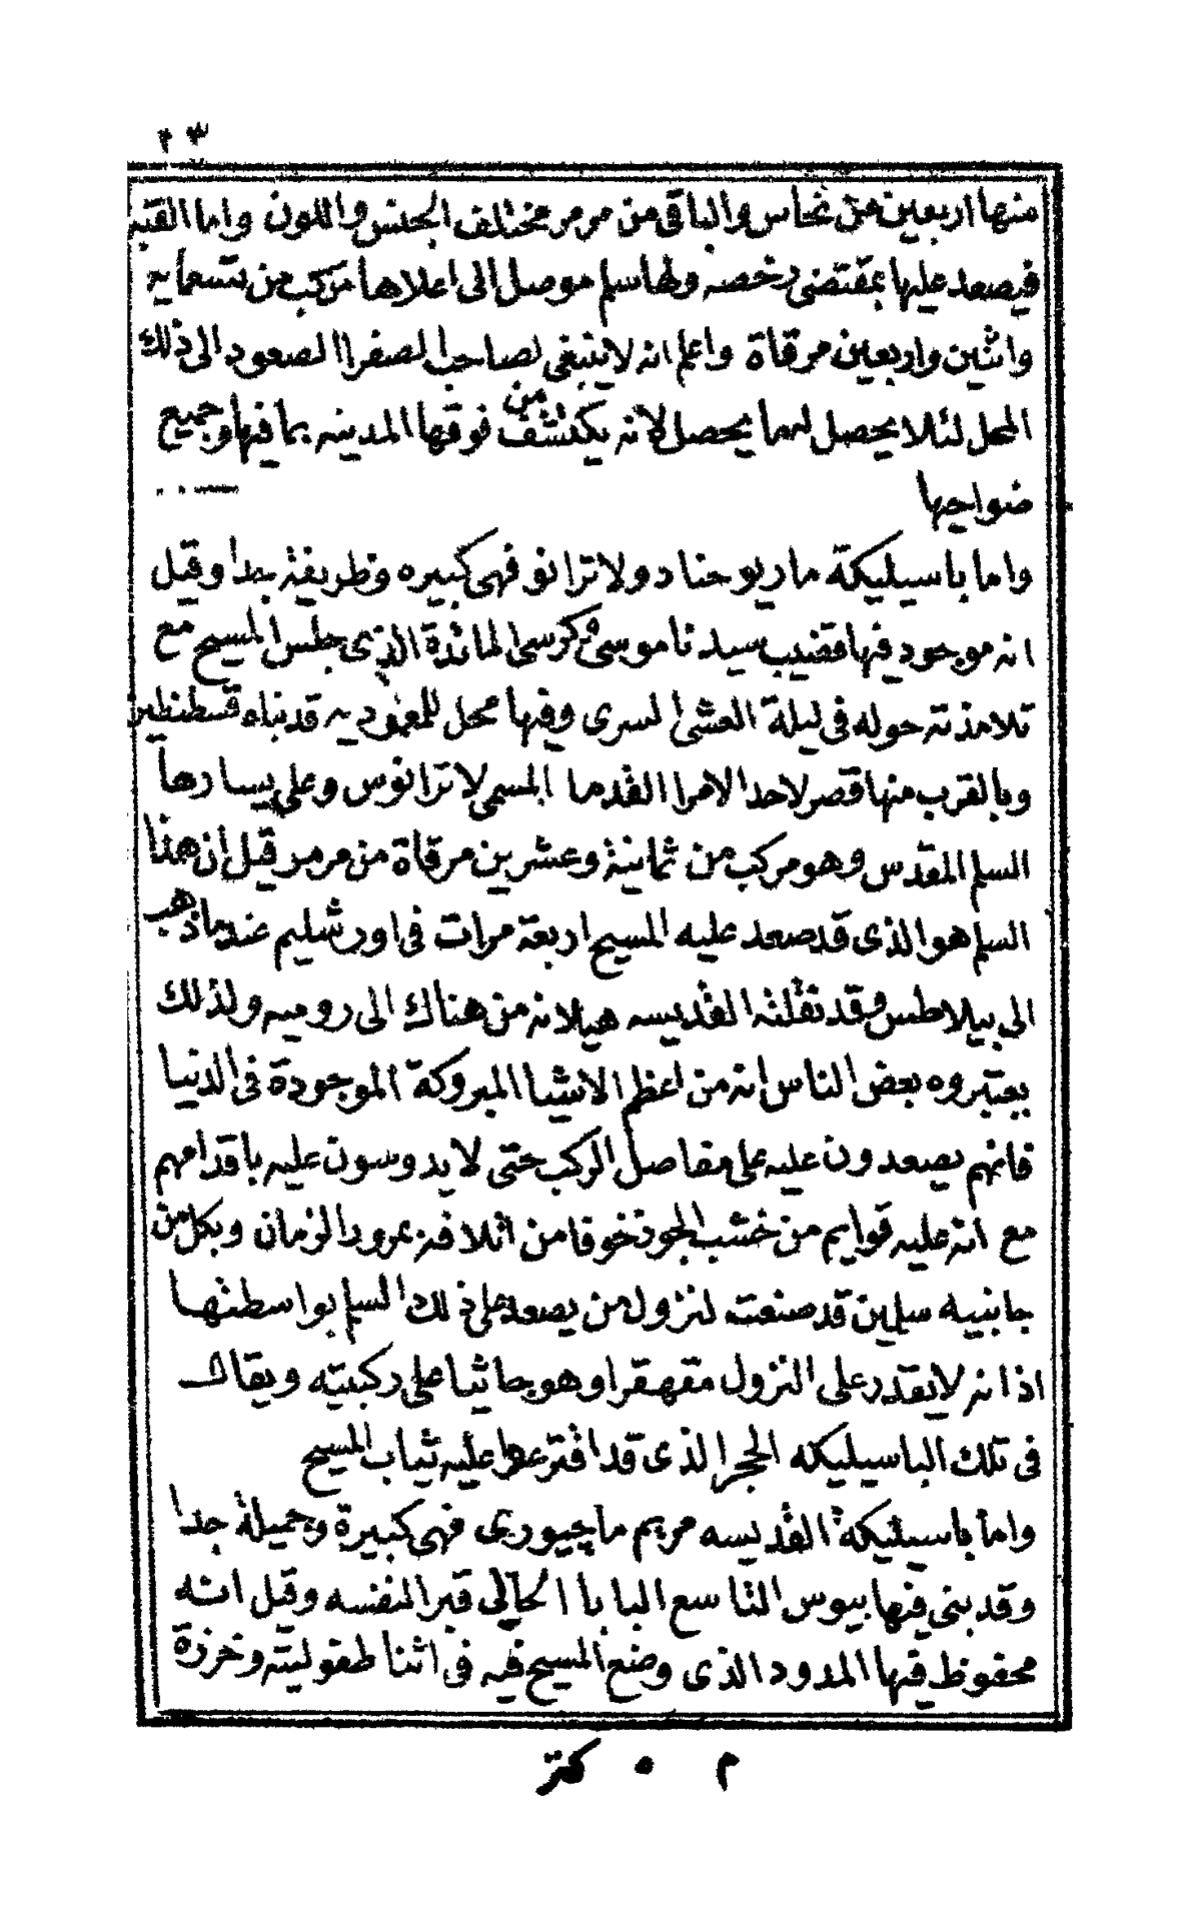 ٣٣
منها اربعين من نحاس والباقي من مرمر مختلف الجنس واللون واما القبه
فيصعد عليها بمقتضى رخصه ولها سلم موصل الى اعلاها مركب من تسعمايه
واثنين واربعين مرقاة واعلم انه لا ينبغي لصاحب الصفرا الصعود الى ذلك
المحل لئلا يحصل لهما يحصل لانه يكتشف من فوقها المدينه بما فيها وجميع
ضواحيها
واما باسيليكة ماريوحنا دولاترانو فهي كبيره وظريفة جدا وقيل
انه موجود فيها قضيب سيدنا موسى وكرسي المائدة الذي جلس المسيح مع
تلامذته حوله في ليلة العشا السري وفيها محل للمعموديه قد بناه قسطنطين
وبالقرب منها قصر لاحد الامرا القدما المسمى لاترانوس وعلى يسارها
السلم المقدس وهو مركب من ثمانية وعشرين مرقاة من مرمر قيل ان هذا
السلم هو الذي قد صعد عليه المسيح اربعة مرات في اورشليم عندما ذهب
الى بيلاطس وقد نقلته القديسه هيلانه من هناك الى روميه ولذلك
يعتبروه بعض الناس انه من اعظم الاشيا المبروكة الموجودة في الدنيا
فانهم يصعدون عليه على مفاصل الركب حتى لا يدوسون عليه باقدامهم
مع انه عليه قوايم من خشب الجوز خوفا من اتلافه بمرور الزمان وبكل من
جانبيه سلمين قد صنعت لنزول من يصعد على ذلك السلم بواسطتها
اذ انه لا يقدر على النزول مقهقرا وهو جاثيا على ركبتيه ويقال
في تلك الباسيليكه الحجر الذي قد اقترعوا عليه ثياب المسيح
واما باسيليكة القديسه مريم ماجيوري فهي كبيرة وجميلة جدا
وقد بنى فيها بيوس التاسع البابا الحالي قبر لنفسه وقيل انه
محفوظ فيها المدود الذي وضع المسيح فيه في اثنا طفوليته وخرزة
م ٥ كتر